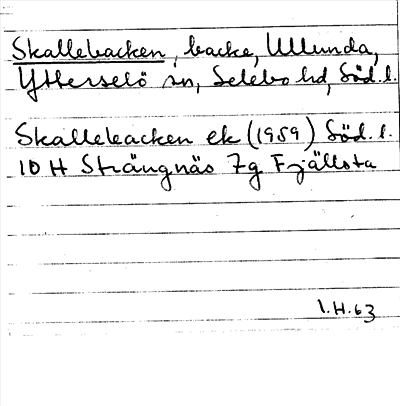 Skallebacken, backe, Ullunda,
Ytterselö sn, Selebo hd, Söd. l.
Skallebacken ek (1959) Söd. l.
10 H Strängnäs 7g Fjällsta
I.H. 63